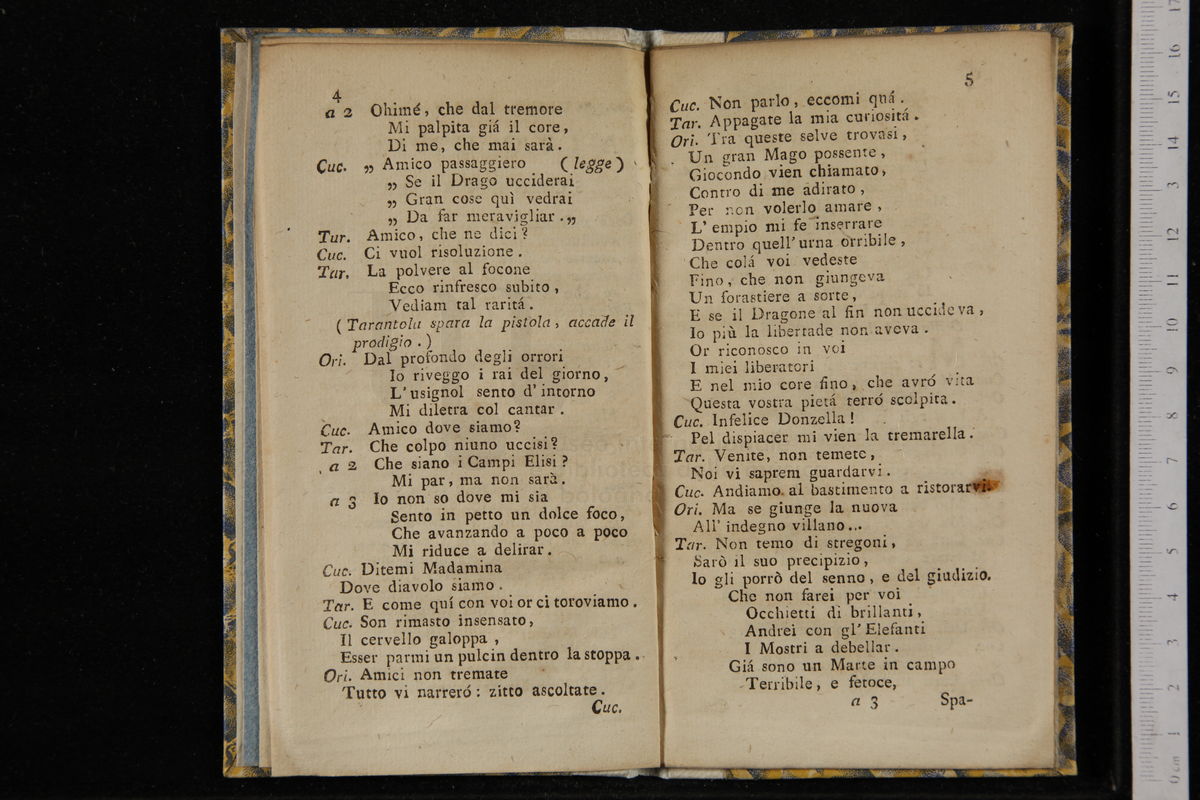 4
a 2 Ohimé, che dal tremore
Mi palpita giá il core,
Di me, che mai sarà.
Cuc. „ Amico passaggiero (legge)
„ Se il Drago ucciderai
„ Gran cose quì vedrai
„ Da far meravigliar.„
Tur. Amico, che ne dici?
Cuc. Ci vuol risoluzione.
Tar. La polvere al focone
Ecco rinfresco subito,
Vediam tal raritá.
(Tarantola spara la pistola, accade il
prodigio.)
Ori. Dal profondo degli orrori
Io riveggo i rai del giorno,
L'usignol sento d'intorno
Mi diletra col cantar.
Cuc. Amico dove siamo?
Tar. Che colpo niuno uccisi?
a 2 Che siano i Campi Elisi?
Mi par, ma non sarà.
a 3 Io non so dove mi sia
Sento in petto un dolce foco,
Che avanzando a poco a poco
Mi riduce a delirar.
Cuc. Ditemi Madamina
Dove diavolo siamo.
Tar. E come quí con voi or ci toroviamo.
Cuc. Son rimasto insensato,
Il cervello galoppa,
Esser parmi un pulcin dentro la stoppa.
Ori. Amici non tremate
Tutto vi narreró: zitto ascoltate.
Cuc.
5
Cuc. Non parlo, eccomi quá.
Tar. Appagate la mia curiositá.
Ori. Tra queste selve trovasi,
Un gran Mago possente,
Giocondo vien chiamato,
Contro di me adirato,
Per non volerlo amare,
L'empio mi fe inserrare
Dentro quell'urna orribile,
Che colá voi vedeste
Fino, che non giungeva
Un forastiere a sorte,
E se il Dragone al fin non uccideva,
Io più la libertade non aveva.
Or riconosco in voi
I miei liberatori
E nel mio core fino, che avró vita
Questa vostra pietá terró scolpita.
Cuc. Infelice Donzella!
Pel dispiacer mi vien la tremarella.
Tar. Venite, non temete,
Noi vi saprem guardarvi.
Cuc. Andiamo al bastimento a ristorarvi.
Ori. Ma se giunge la nuova
All' indegno villano...
Tar. Non temo di stregoni,
Sarò il suo precipizio,
Io gli porrò del senno, e del giudizio.
Che non farei per voi
Occhietti di brillanti,
Andrei con gl'Elefanti
I Mostri a debellar.
Giá sono un Marte in campo
Terribile, e fetoce,
a 3 Spa-
0 cm 1 2 3 4 5 6 7 8 9 10 11 12 13 14 15 16 17